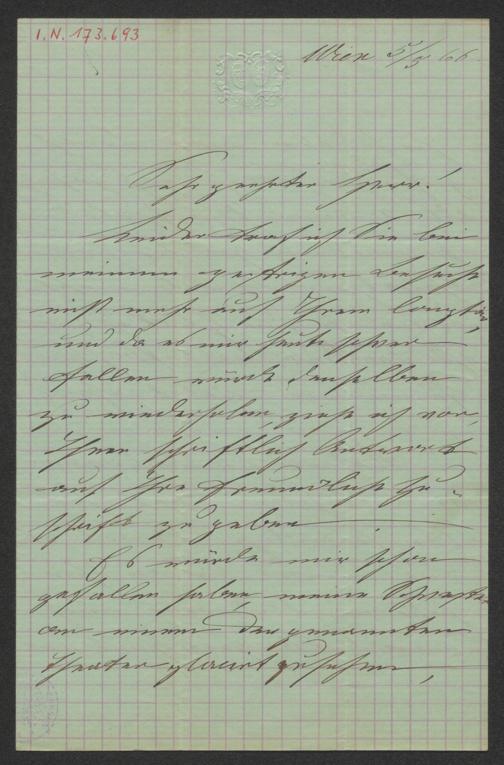 I. N. 173.693
Wien 5/5 66
Sehr geehrter Herr!
Leider traf ich Sie bei
meinem gestrigen Besuche
nicht mehr auf Ihrem
und da es mir heute schwer
fallen würde denselben
zu wiederholen, ziehe ich vor,
Ihnen schriftlich Antwort
auf Ihre freundliche Zu-
schrift zu geben
Es würde mir schon
gefallen haben, meine Schwester
an einem der genannten
Theater placirt zu sehen,